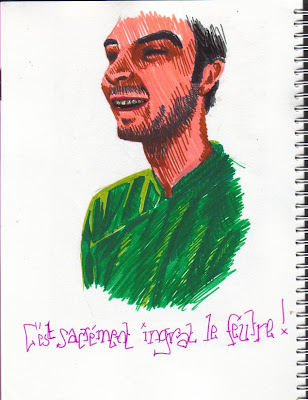 C'est sacrément ingrat le feutre !